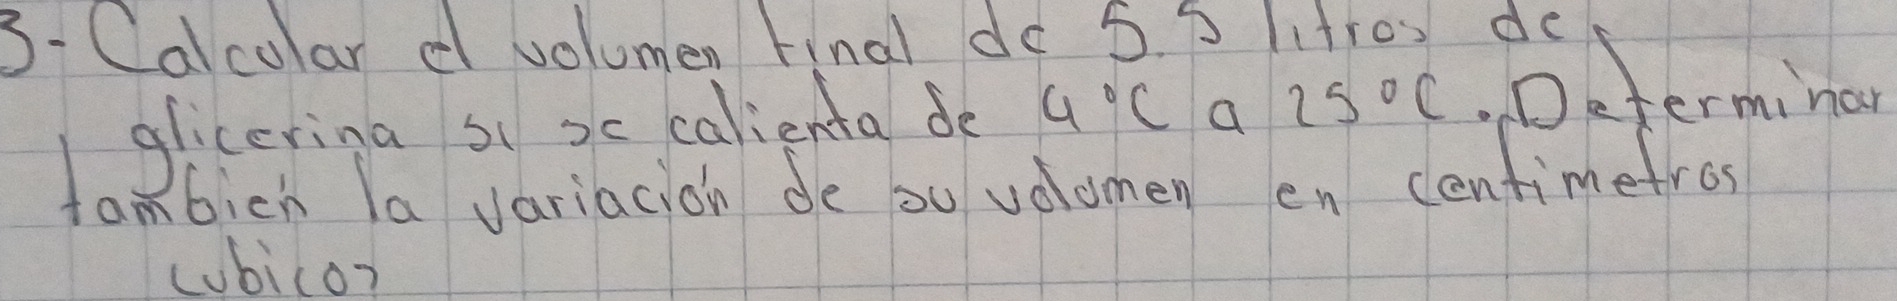 3-Calcular el volumen final de 5.5 litros de
glicerina si se calienta de 4°C a 25°C. Determinar
tambien la variación de su volumen en centimetros
cubicos